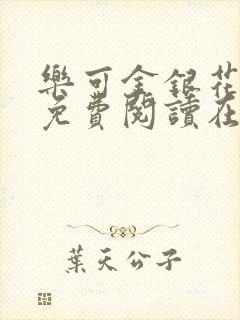 樂可金銀花
免費閱讀在
葉天公子